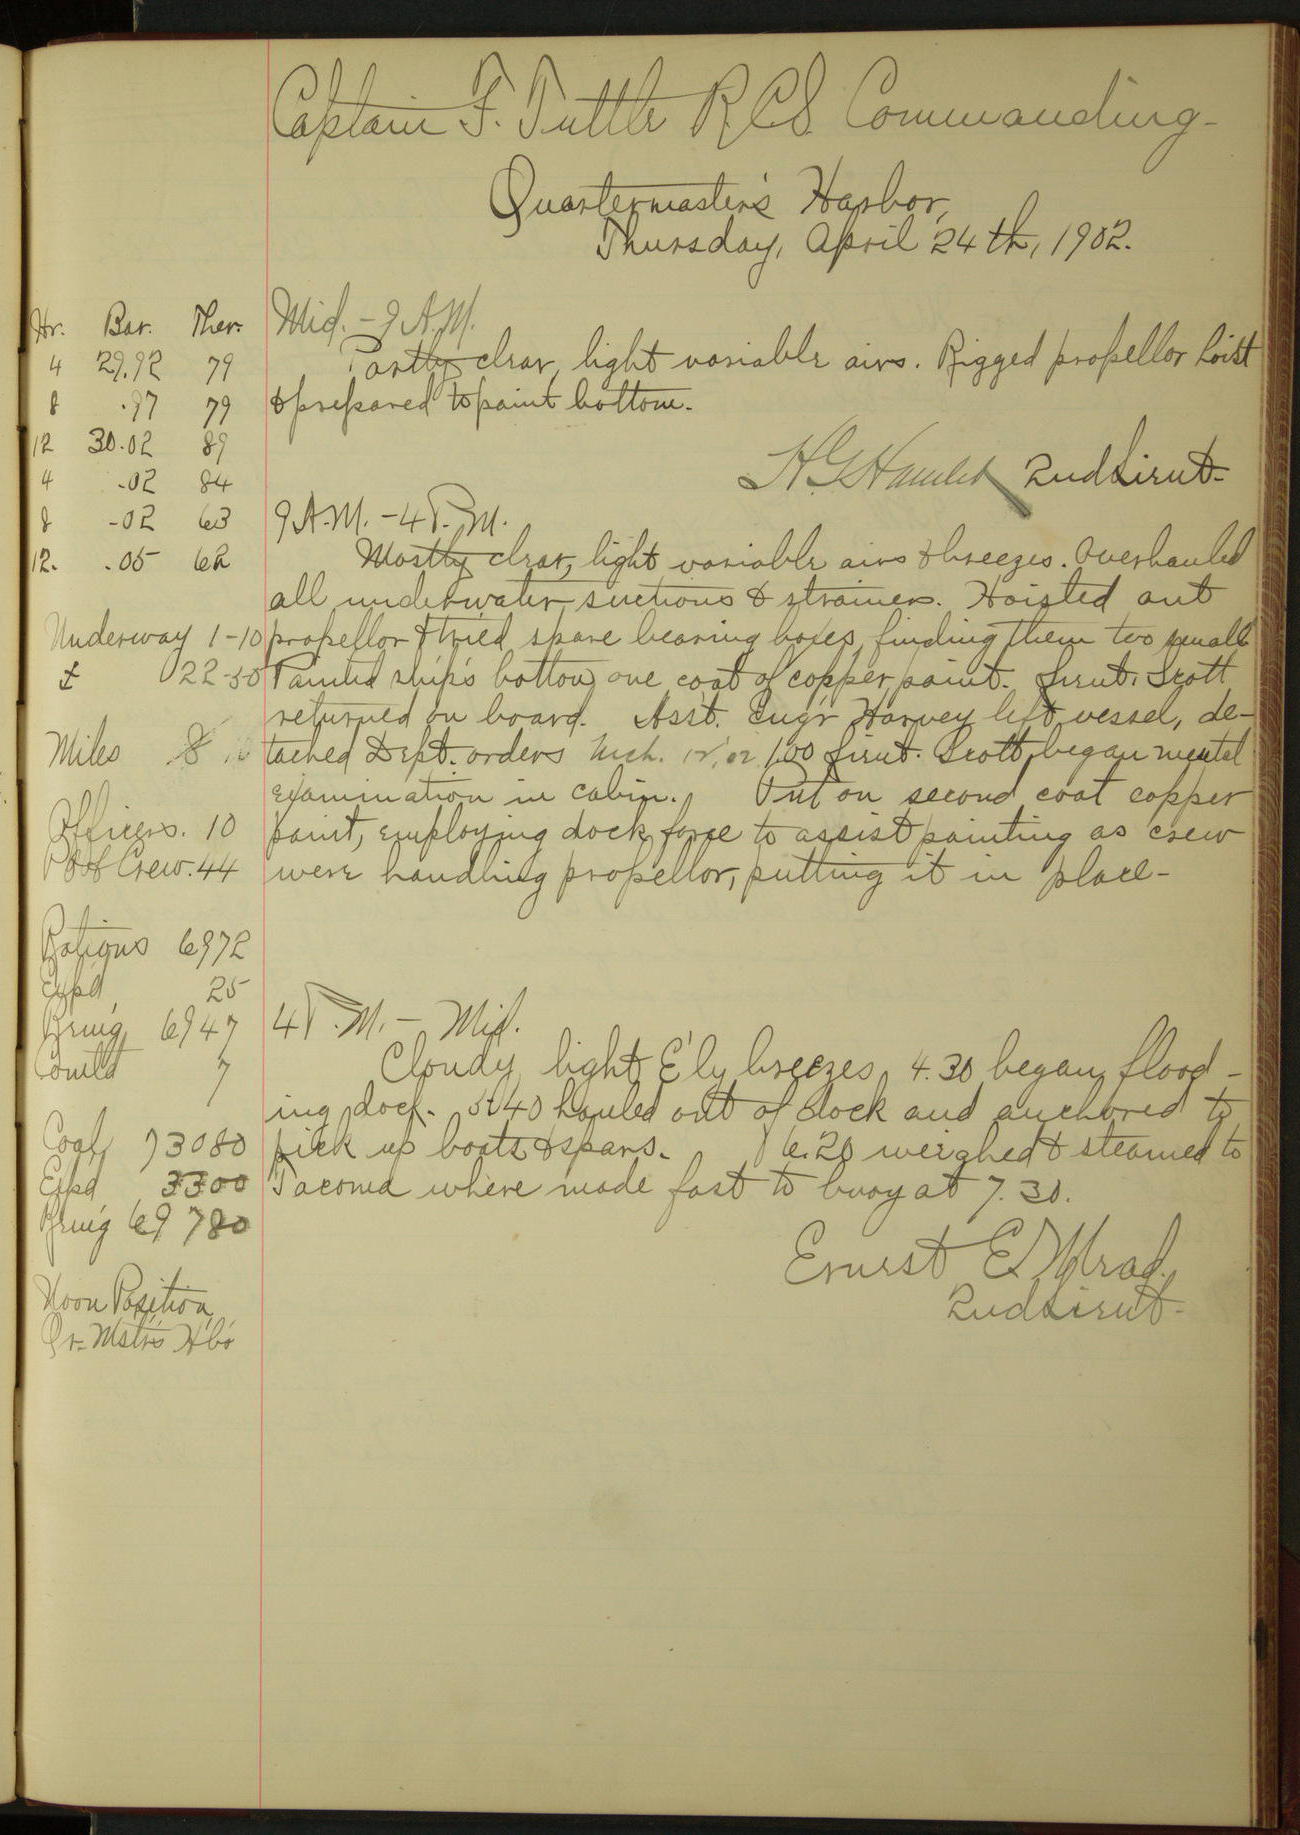 Captain F. Tuttle R.C.S. Commanding-
Quartermaster's Harbor,
Thursday, April 24th, 1902.
Hr. Bar. Ther.
4 29.92 79
8 .97 79
12 30.02 89
4 .02 84
8 -02 63
12. .05 62
Underway 1-10
22-50
Miles 8
Officers. 10
Crew. 44
Rations 6972
Expd 25
Remg 6947
Comtd 7
Coal 73080
Expd 3300
Remg 69780
Noon Position
Qr. Mstrs Hbr
Mid. - 9 A.M.
Partly clear, light variable airs. Rigged propellor hoist
& prepared to paint bottom.
H.G. Hamlet 2nd Lieut-
9 A.M. - 4 P.M.
Mostly clear, light variable airs & breezes. Overhauled
all underwater suctions & strainers. Hoisted out
propellor & tried spare bearing boxes, finding them too small
Painted ship's bottom one coat of copper paint. Lieut. Scott
returned on board. Asst. Eng'r Harvey left vessel, de-
tached Dept. orders Mch. 1.00 Lieut. Scott began mental
examination in cabin. Put on second coat copper
paint, employing dock force to assist painting as crew
were handling propellor, putting it in place-
4 P.M. - Mid.
Cloudy, light E'ly breezes, 4.30 began flood-
ing dock. 5.40 hauled out of dock and anchored to
pick up boats & spars. 6.20 weighed & steamed to
Tacoma where made fast to buoy at 7.30.
Ernest E. Mead
2nd Lieut-